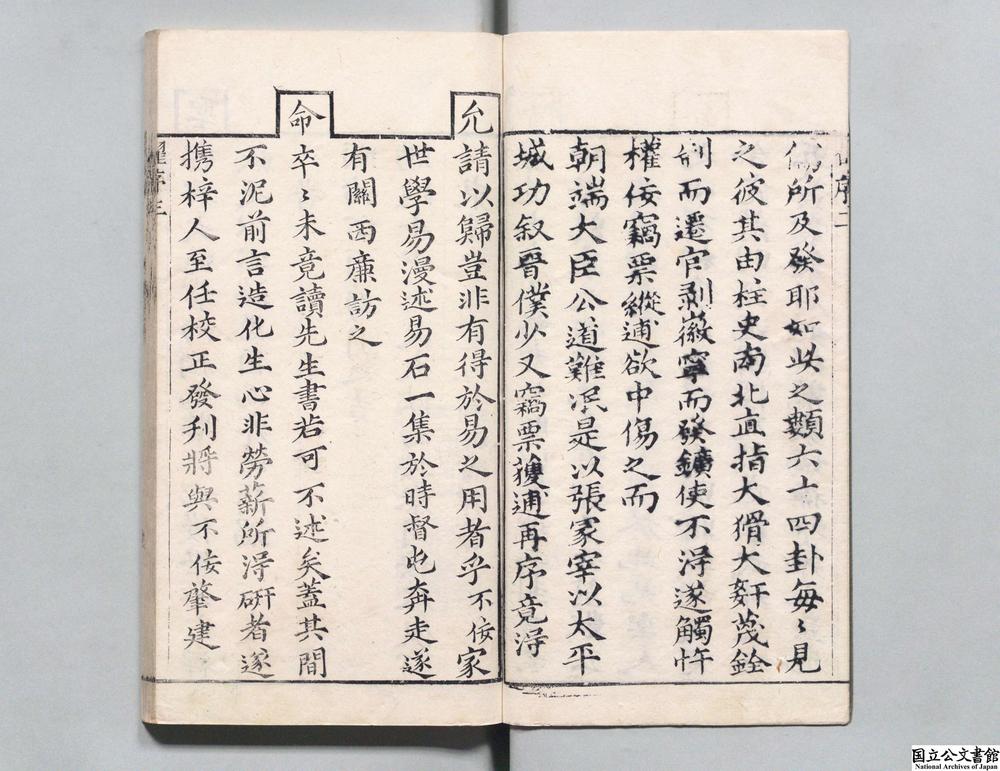 儒所及發耶如此之類六十四卦每〻見
之彼其由柱史南北直指大猾大奸茂銓
制而遷官剥徽寧而發鑛使不淂遂觸忤
權佞竊票縱逋欲中傷之而
朝端大臣公道難泯是以張冢宰以太平
城功叙晉僕少又竊票獲逋再序竟淂
允
請以歸豈非有得於易之用者乎不佞家
世學易漫述易石一集於時督屯奔走遂
有關西廉訪之
命
卒〻未竟讀先生書若可不述矣蓋其間
不泥前言造化生心非勞薪所淂研者遂
携梓人至任校正發刋將與不佞肇建
序二
序三
国立公文書館
National Archives of Japan